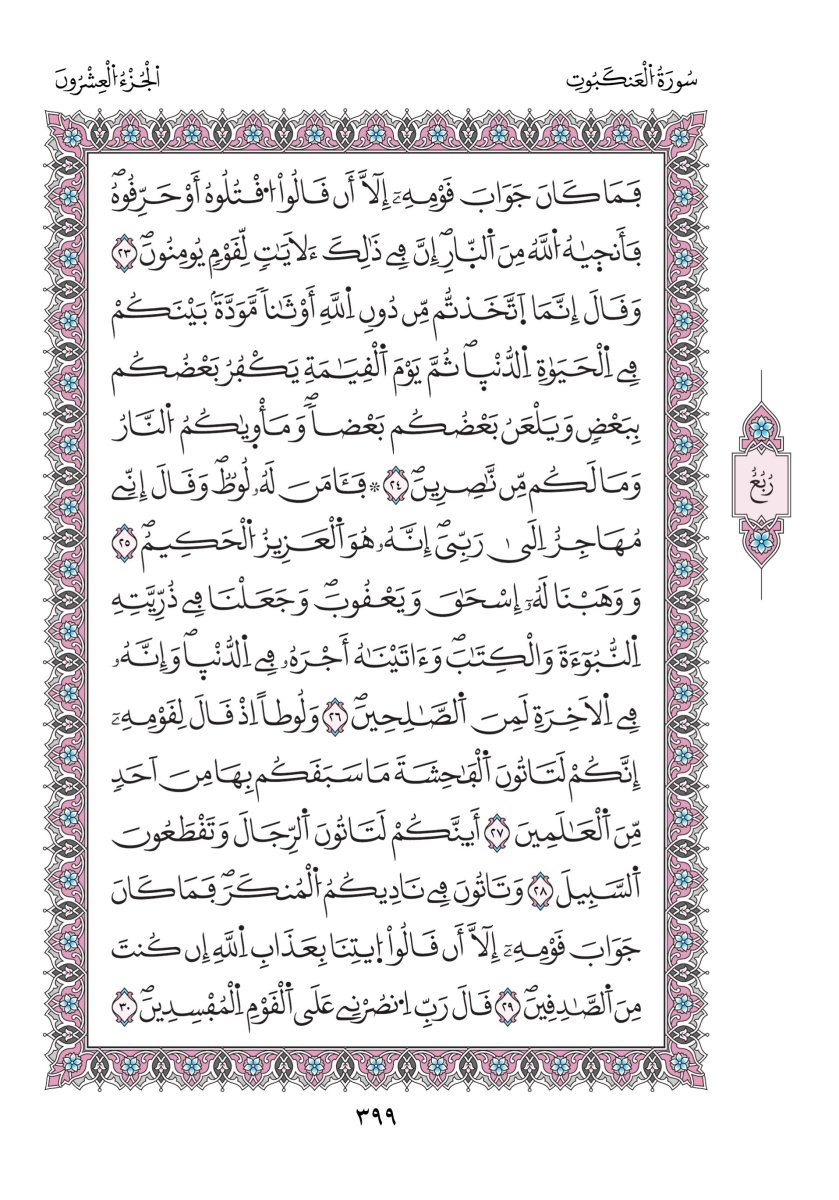 سُورَةُ اُ۬لْعَنكَبُوتِ
اَ۬لْجُزْءُ اُ۬لْعِشْرُونَ
فَمَا كَانَ جَوَابَ قَوْمِهِۦٓ إِلَّآ أَن قَالُواْ اُ۟قْتُلُوهُ أَوْ حَرِّقُوهُۖ
فَأَنج۪يٰهُ اُ۬للَّهُ مِنَ اَ۬لنّ۪ارِۖ إِنَّ فِے ذَٰلِكَ ءَلَايَٰتٖ لِّقَوْمٖ يُومِنُونَۖ ٢٣
وَقَالَ إِنَّمَا اَ۪تَّخَذتُّم مِّن دُونِ اِ۬للَّهِ أَوْثَٰناٗ مَّوَدَّةَۢ بَيْنَكُمْ
فِے اِ۬لْحَيَوٰةِ اِ۬لدُّنْي۪اۖ ثُمَّ يَوْمَ اَ۬لْقِيَٰمَةِ يَكْفُرُ بَعْضُكُم
بِبَعْضٖ وَيَلْعَنُ بَعْضُكُم بَعْضاٗۖ وَمَأْو۪يٰكُمُ اُ۬لنَّارُ
وَمَا لَكُم مِّن نَّٰصِرِينَۖ ٢٤ ۞ فَـَٔامَنَ لَهُۥ لُوطٞۖ وَقَالَ إِنِّے
مُهَاجِرٌ اِلَىٰ رَبِّيَۖ إِنَّهُۥ هُوَ اَ۬لْعَزِيزُ اُ۬لْحَكِيمُۖ ٢٥
وَوَهَبْنَا لَهُۥٓ إِسْحَٰقَ وَيَعْقُوبَۖ وَجَعَلْنَا فِے ذُرِّيَّتِهِ
اِ۬لنُّبُوٓءَةَ وَالْكِتَٰبَۖ وَءَاتَيْنَٰهُ أَجْرَهُۥ فِے اِ۬لدُّنْي۪اۖ وَإِنَّهُۥ
فِے اِ۬لَاخِرَةِ لَمِنَ اَ۬لصَّٰلِحِينَۖ ٢٦ وَلُوطاً اِذْ قَالَ لِقَوْمِهِۦٓ
إِنَّكُمْ لَتَاتُونَ اَ۬لْفَٰحِشَةَ مَا سَبَقَكُم بِهَا مِنَ اَحَدٖ
مِّنَ اَ۬لْعَٰلَمِينَ ٢٧ أَئِنَّكُمْ لَتَاتُونَ اَ۬لرِّجَالَ وَتَقْطَعُونَ
اَ۬لسَّبِيلَ ٢٨ وَتَاتُونَ فِے نَادِيكُمُ اُ۬لْمُنكَرَۖ فَمَا كَانَ
جَوَابَ قَوْمِهِۦٓ إِلَّآ أَن قَالُواْ اُ۪يتِنَا بِعَذَابِ اِ۬للَّهِ إِن كُنتَ
مِنَ اَ۬لصَّٰدِقِينَۖ ٢٩ قَالَ رَبِّ اِ۟نصُرْنِے عَلَى اَ۬لْقَوْمِ اِ۬لْمُفْسِدِينَۖ ٣٠
رُبُعُ
٣٩٩